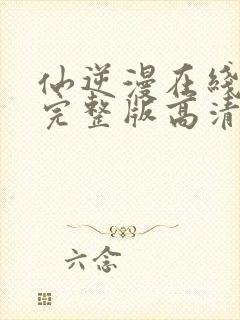 仙逆漫在线
完整版高清
六念